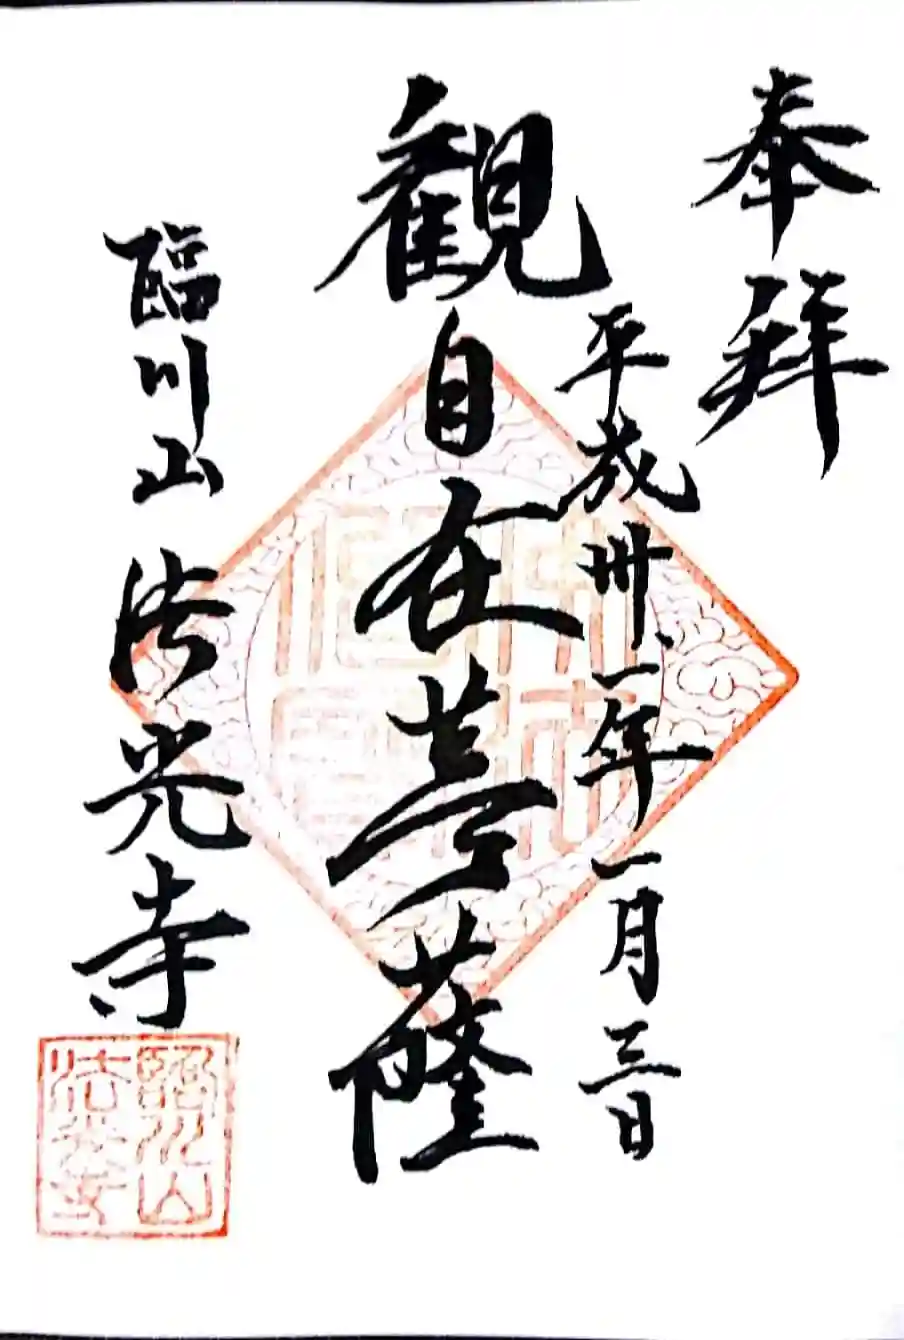 奉拜
平成卅一年一月三日
観自在菩薩
臨川山 法光寺
臨川山
法光寺